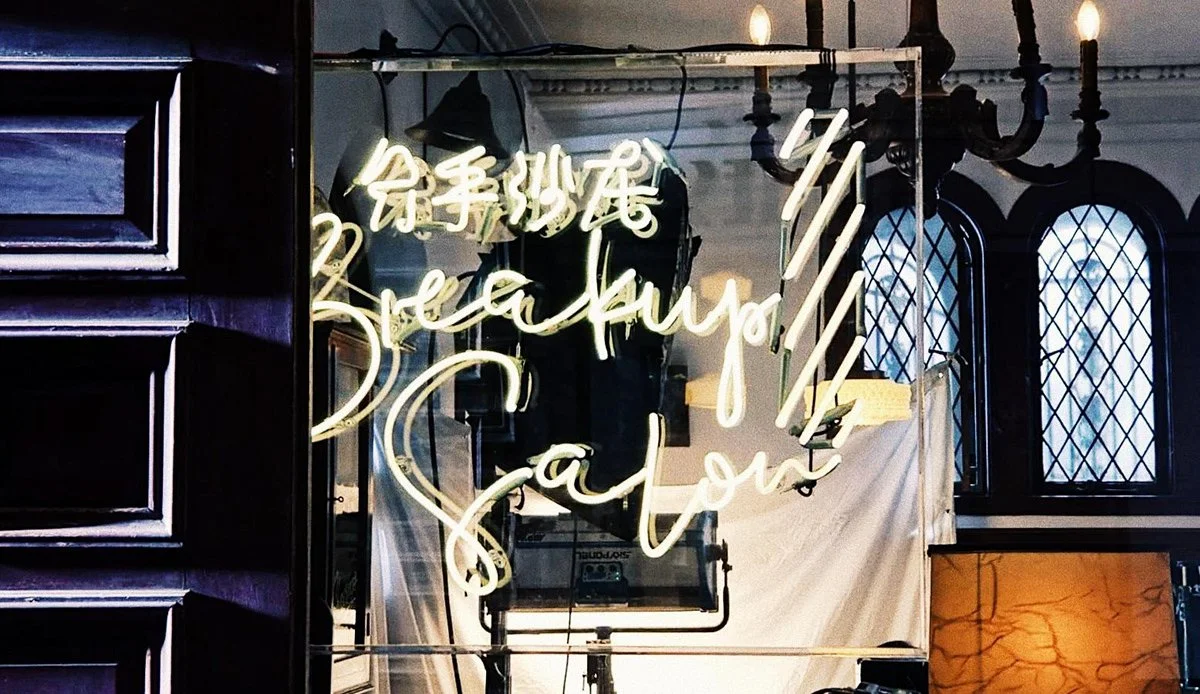 分手沙龙
Breakup
Salon
SKYPANEL